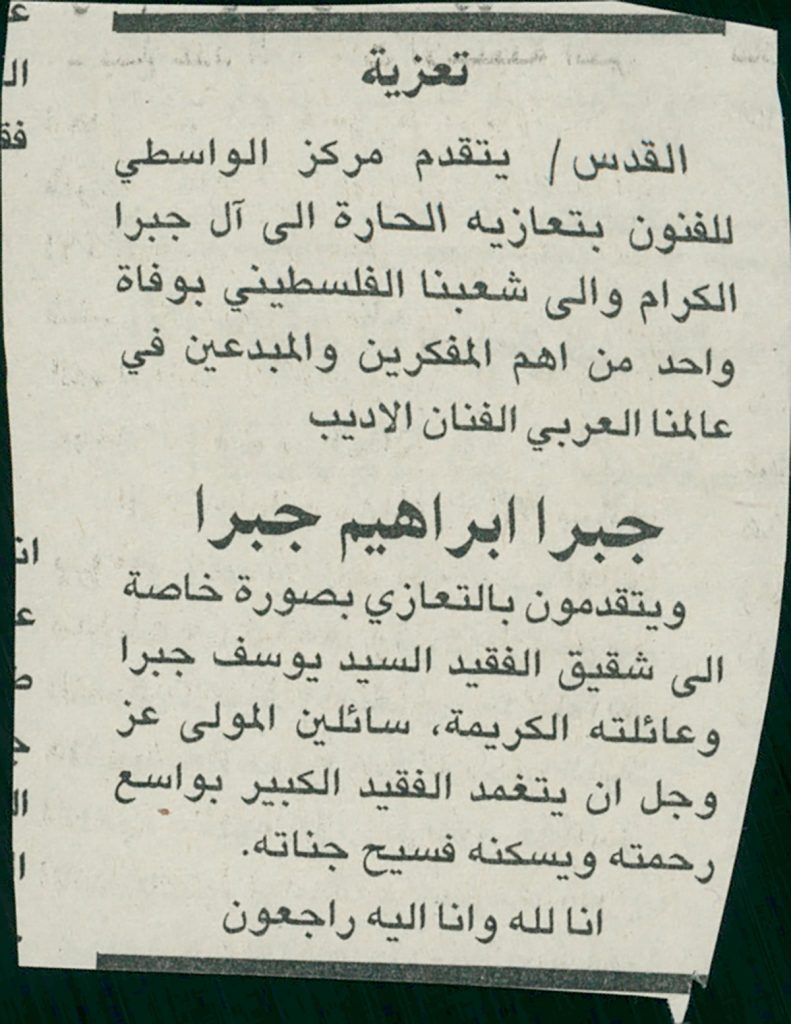 تعزية
القدس / يتقدم مركز الواسطي
للفنون بتعازيه الحارة الى آل جبرا
الكرام والى شعبنا الفلسطيني بوفاة
واحد من اهم المفكرين والمبدعين في
عالمنا العربي الفنان الاديب
جبرا ابراهيم جبرا
ويتقدمون بالتعازي بصورة خاصة
الى شقيق الفقيد السيد يوسف جبرا
وعائلته الكريمة، سائلين المولى عز
وجل ان يتغمد الفقيد الكبير بواسع
رحمته ويسكنه فسيح جناته.
انا لله وانا اليه راجعون